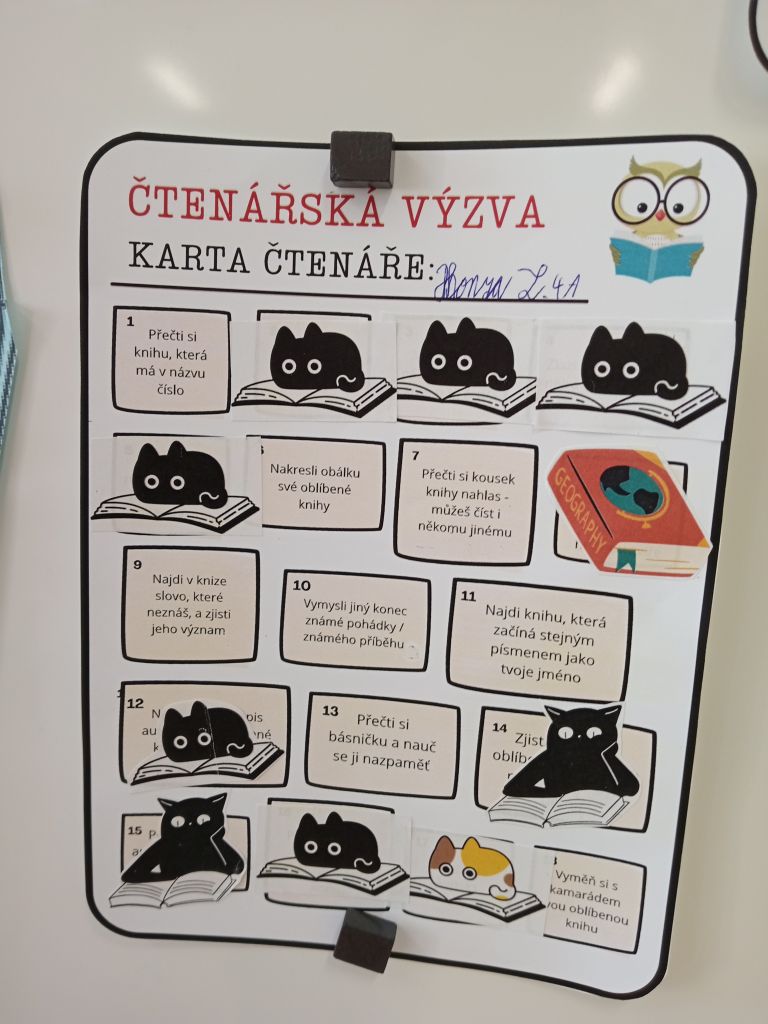 ČTENÁŘSKÁ VÝZVA
KARTA ČTENÁŘE: Honza L. 4A
1
Přečti si
knihu, která
má v názvu
číslo
Nakresli obálku
své oblíbené
knihy
7
Přečti si kousek
knihy nahlas -
můžeš číst i
někomu jinému
GEOGRAPHY
9
Najdi v knize
slovo, které
neznáš, a zjisti
jeho význam
10
Vymysli jiný konec
známé pohádky /
známého příběhu
11
Najdi knihu, která
začíná stejným
písmenem jako
tvoje jméno
12
13
Přečti si
básničku a nauč
se ji nazpaměť
14
15
Vyměň si s
kamarádem
oblíbenou
knihu